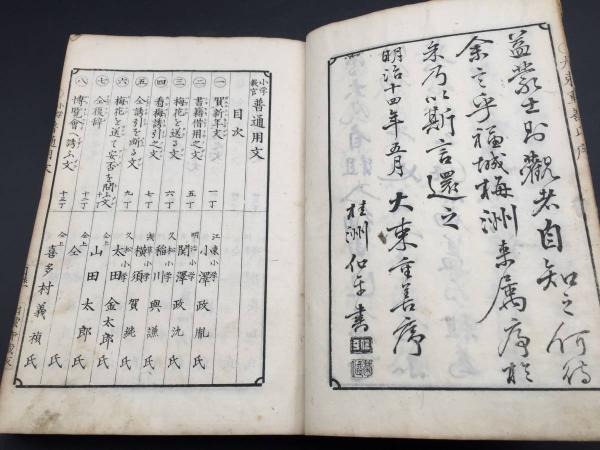 益蒙士則觀者自知之何待
余言乎福城梅洲來属序於
余乃以斯言還之
明治十四年五月 大東重善序
桂洲 書
小学教官 普通用文
目次
一 賀新年文 一丁 江東小学 小澤政胤氏
二 書籍借用之文 五丁 明治小学 関澤政沈氏
三 梅花を送る文 六丁 久松小学 稲川興謙氏
四 看梅誘引之文 七丁 小学 横須賀純氏
五 仝誘引を断る文 九丁 久松小学 太田金太郎氏
六 梅花を送て安否を問ふ文 仝上 山田太郎氏
七 仝復辞 仝上 仝 氏
八 博覧會へ誘ふ文 十三丁 仝上 喜多村義禎氏
小学 普通用文